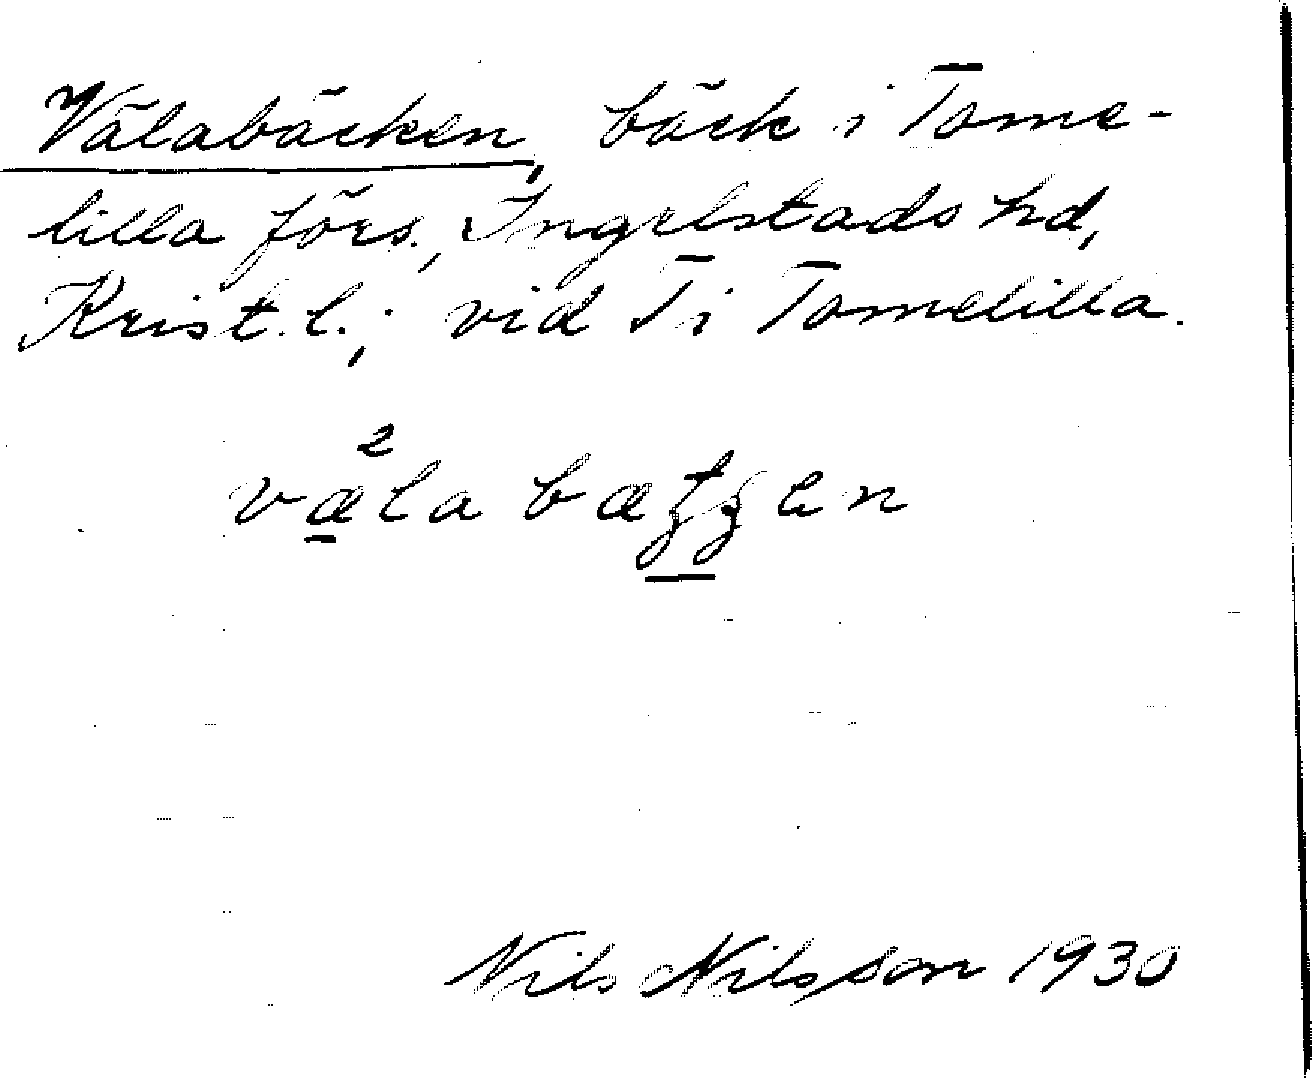 Välabäcken, bäck i Tome-
lilla förs., Ingelstads hd,
Krist. l.; vid T i Tomelilla.
Nils Nilsson 1930